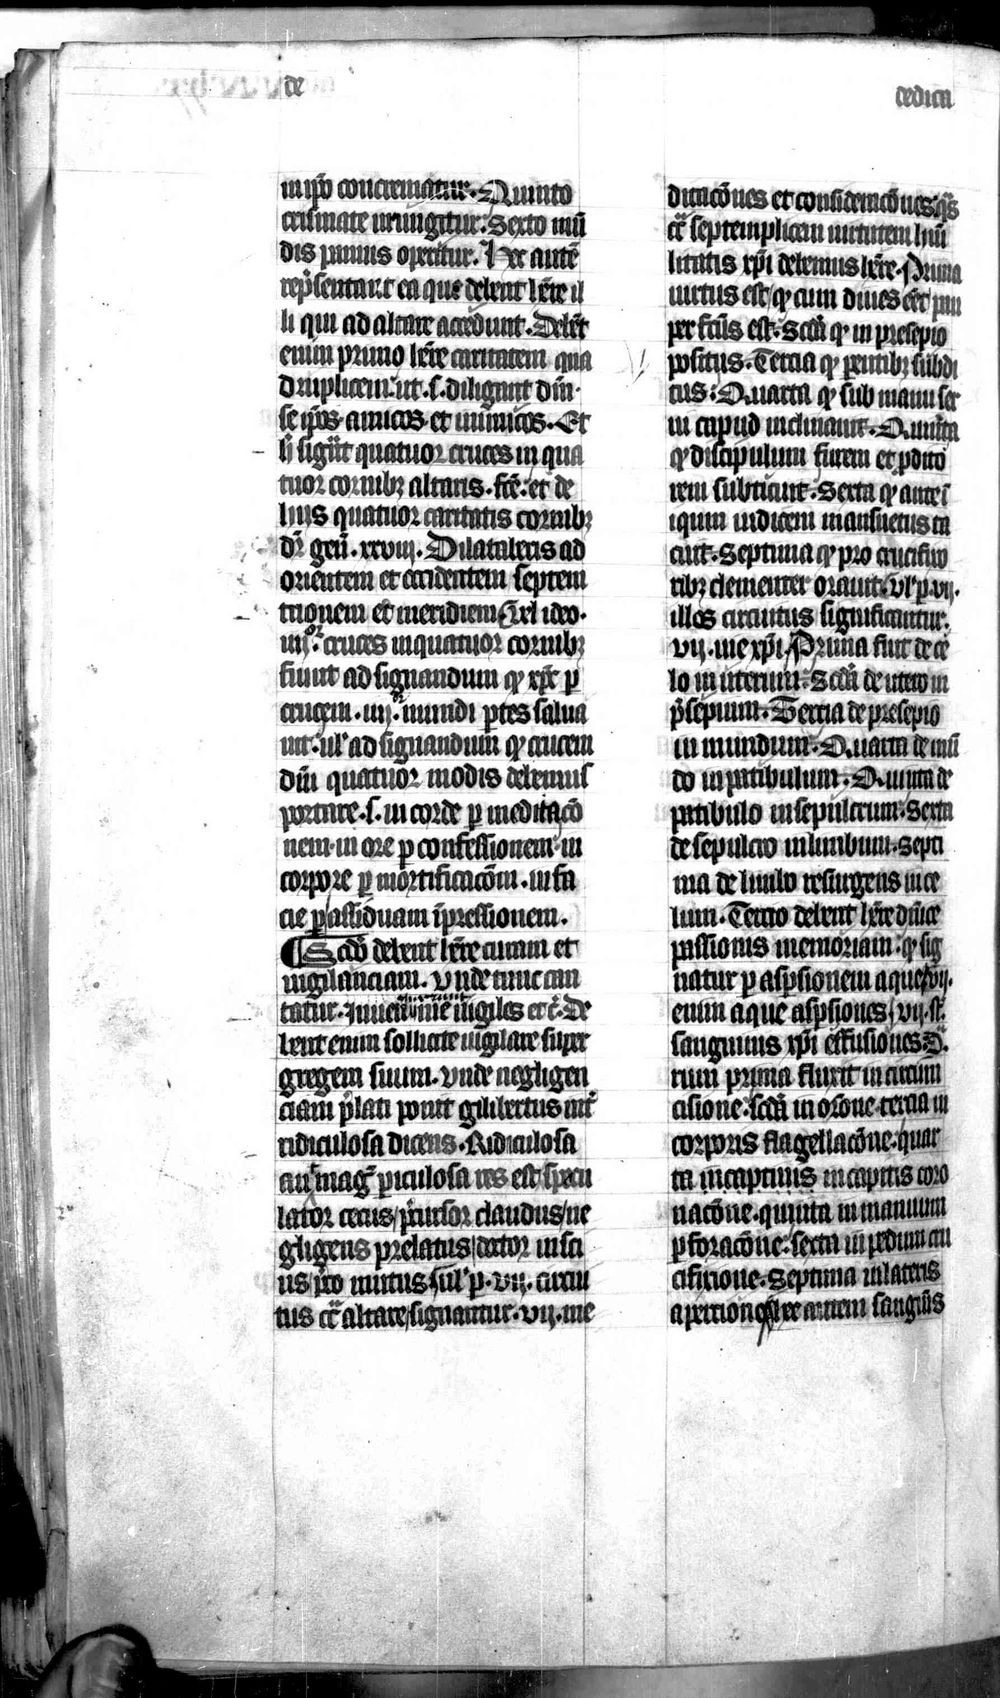 de
dedica
in ip̄o concrematur. Quinto
crismate inungitur. Sexto mū
dis pannis operitur. Hec autē
rep̄sentant ea que debent h̄ere il
li qui ad altare accedunt. Debēt
enim primo h̄ere caritatem qua
druplicem. ut .s. diligant dm̄.
se ip̄os. amicos et inimicos. Et
h̄ sigīt quatuor cruces in qua
tuor cornibꝫ altaris. fcē. et de
hijs quatuor caritatis cornibꝫ
dr̄ geū. xxviij. Dilataberis ad
orientem et occidentem septem
trionem et meridiem Vel ideo.
iiijor. cruces in quatuor cornibꝫ
fiunt ad signandum qꝫ xp̄c ꝑ
crucem .iiijor. mundi ꝑtes salua
uit. ul' ad signandum qꝫ crucem
dm̄ quatuor modis debemus
portare .s. in corde ꝑ meditacō
nem. in ore ꝑ confessionem. in
corpore ꝑ mortificacōm. in fa
cie ꝑ assiduam īpressionem.
¶ Scdō debent h̄ere curam et
vigilanciam. Vnde tunc can
tatur. Inuenerunt me vigiles etc̄. De
bent enim sollicite vigilare super
gregem suum. Vnde negligen
ciam p̄lati ponit gilibertus int̄
ridiculosa dicens. Ridiculosa
au' maḡ ꝑiculosa res est specu
lator cecus / p̄cursor claudus / ne
gligens prelatus / doctor insci
us / p̄co mutus / ul' ꝑ. vij. circui
tus cc̄ altare / signantur. vij. me
ditacōnes et consideracōnes / q̄s
cc̄ septemplicem uirtutem hūi
litatis xp̄i debemus h̄ere. Prima
uirtus est / qꝫ cum diues eēt pau
per fcūs est. Scdā qꝫ in presepio
positus. Tercia qꝫ pentibꝫ subdi
tus. Quarta qꝫ sub manu ser
ui capud inclinauit. Quinta
qꝫ discipulum furem et ꝓdito
rem subticuit. Sexta qꝫ ante ī
iquum iudicem mansuetus ta
cuit. Septima qꝫ pro crucifixo
ribꝫ clementer orauit. Vl' ꝑ. vij.
illos circuitus significantur.
vij. uie xp̄i. Prima fuit de ce
lo in uterum. Scdā de utero in
p̄sepium. Tercia de presepio
in mundum. Quarta de mū
do in patibulum. Quinta de
patibulo in sepulcrum. Sexta
de sepulcro in limbum. Septi
ma de limbo resurgens in ce
lum. Tercio debent h̄ere dn̄ice
passionis memoriam. qꝫ sig
natur ꝑ aspsionem aque / vij.
enim aque aspsiones / vij. st̄
sanguinis xp̄i effusiones. Q̄
rum prima fluxit in circum
cisione. scdā in orōne. tercia in
corporis flagellacōne. quar
ta in capitis coro
nacōne. quinta in manuum
ꝑforacōne. sexta in pedum cru
cifixione. Septima in lateris
apercione. Hec autem sanguīs